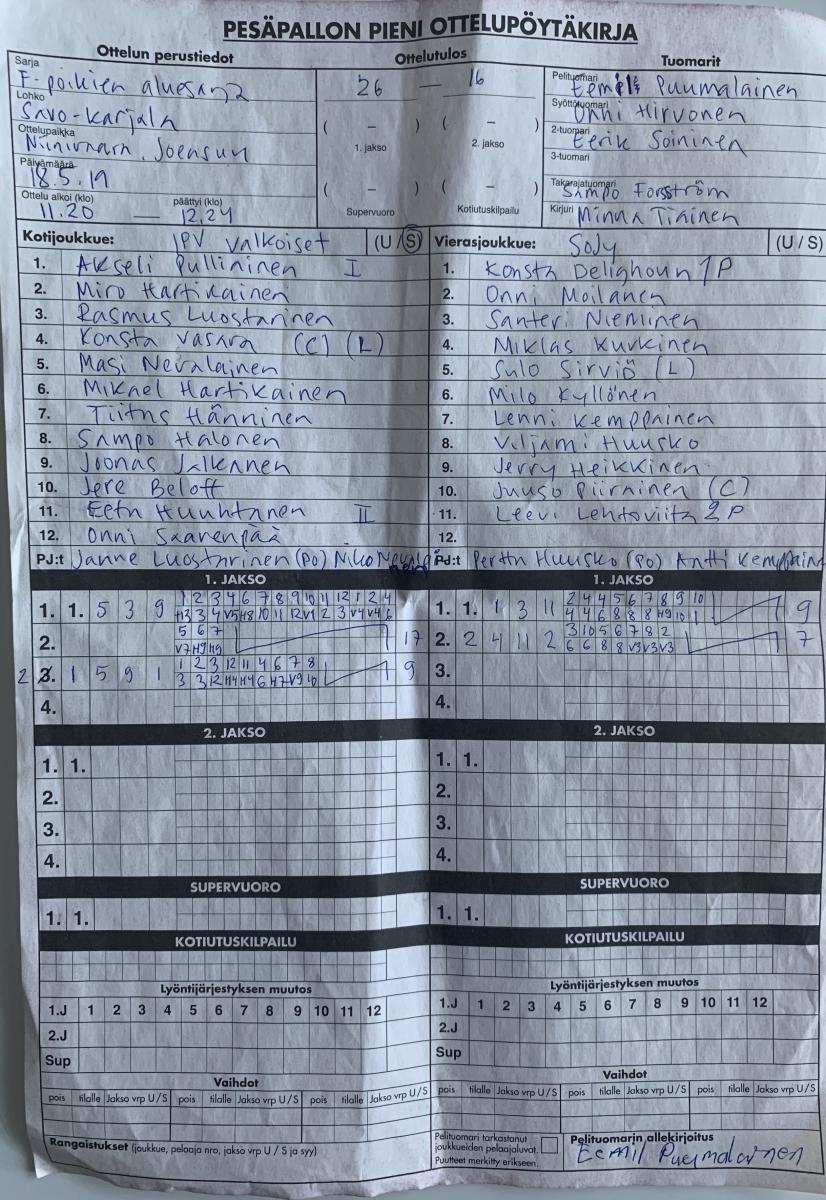 PESÄPALLON PIENI OTTELUPÖYTÄKIRJA
Ottelun perustiedot
Ottelutulos
Tuomarit
Sarja
F-poikien aluesarja
Lohko
Savo-Karjala
Ottelupaikka
Niinivaara, Joensuu
Päivämäärä
18.5.19
Ottelu alkoi (klo) päättyi (klo)
11.20 — 12.24
26 — 16
( – ) ( – )
1. jakso 2. jakso
( – ) ( – )
Supervuoro Kotiutuskilpailu
Pelituomari
Eemil Puumalainen
Syöttötuomari
Onni Hirvonen
2-tuomari
Eerik Soininen
3-tuomari
Takarajatuomari
Sampo Forsström
Kirjuri Minna Tiainen
Kotijoukkue: JPV Valkoiset (U/S)
1. Akseli Pullininen I
2. Miro Hartikainen
3. Rasmus Luostarinen
4. Konsta Vasara (C) (L)
5. Masi Nevalainen
6. Mikael Hartikainen
7. Tiitus Hänninen
8. Sampo Halonen
9. Joonas Jalkanen
10. Jere Beloff
11. Eetu Huuhtanen II
12. Onni Saarenpää
PJ:t Janne Luostarinen (PO) Niko Nevalainen
Vierasjoukkue: SoJy (U/S)
1. Konsta Delighoun 1P
2. Onni Moilanen
3. Santeri Nieminen
4. Miklas Kurkinen
5. Sulo Sirviö (L)
6. Milo Kyllönen
7. Lenni Kemppainen
8. Viljami Huusko
9. Jerry Heikkinen
10. Juuso Piirainen (C)
11. Leevi Lehtoviita 2P
12.
PJ:t Perttu Huusko (PO) Antti Kemppainen
1. JAKSO
1 2 3 4 6 7 8 9 10 11 12 1 2 4
1. 1. 5 3 9 H3 3 4 V5 H8 10 11 12 V1 2 3 V4 V4 6
5 6 7
2. V7 H9 H9 17
1 2 3 12 11 4 6 7 8
2 3. 1 5 9 1 3 3 12 H4 H4 6 H7 V9 10 9
4.
2. JAKSO
1. 1.
2.
3.
4.
SUPERVUORO
1. 1.
KOTIUTUSKILPAILU
Lyöntijärjestyksen muutos
1.J 1 2 3 4 5 6 7 8 9 10 11 12
2.J
Sup
Vaihdot
pois tilalle Jakso vrp U/S pois tilalle Jakso vrp U/S pois tilalle Jakso vrp U/S
Rangaistukset (joukkue, pelaaja nro, jakso vrp U / S ja syy)
1. JAKSO
2 4 4 5 6 7 8 9 10
1. 1. 1 3 11 4 4 6 8 8 8 H9 10 1 9
3 10 5 6 7 8 2
2. 2 4 11 2 6 6 8 8 V3 V3 V3 7
3.
4.
2. JAKSO
1. 1.
2.
3.
4.
SUPERVUORO
1. 1.
KOTIUTUSKILPAILU
Lyöntijärjestyksen muutos
1.J 1 2 3 4 5 6 7 8 9 10 11 12
2.J
Sup
Vaihdot
pois tilalle Jakso vrp U/S pois tilalle Jakso vrp U/S pois tilalle Jakso vrp U/S
Pelituomari tarkastanut
joukkueiden pelaajaluvat.
Puutteet merkitty erikseen.
Pelituomarin allekirjoitus
Eemil Puumalainen